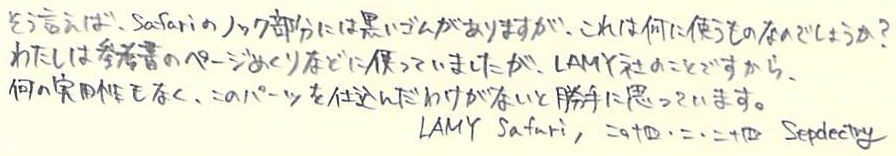 そう言えば、Safariのノック部分には黒いゴムがありますが、これは何に使うものなのでしょうか?
わたしは参考書のページめくりなどに使っていましたが、LAMY社のことですから、
何の実用性もなく、このパーツを仕込んだわけがないと勝手に思っています。
LAMY Safari, 二〇十四・二・二十四 Sepdectny